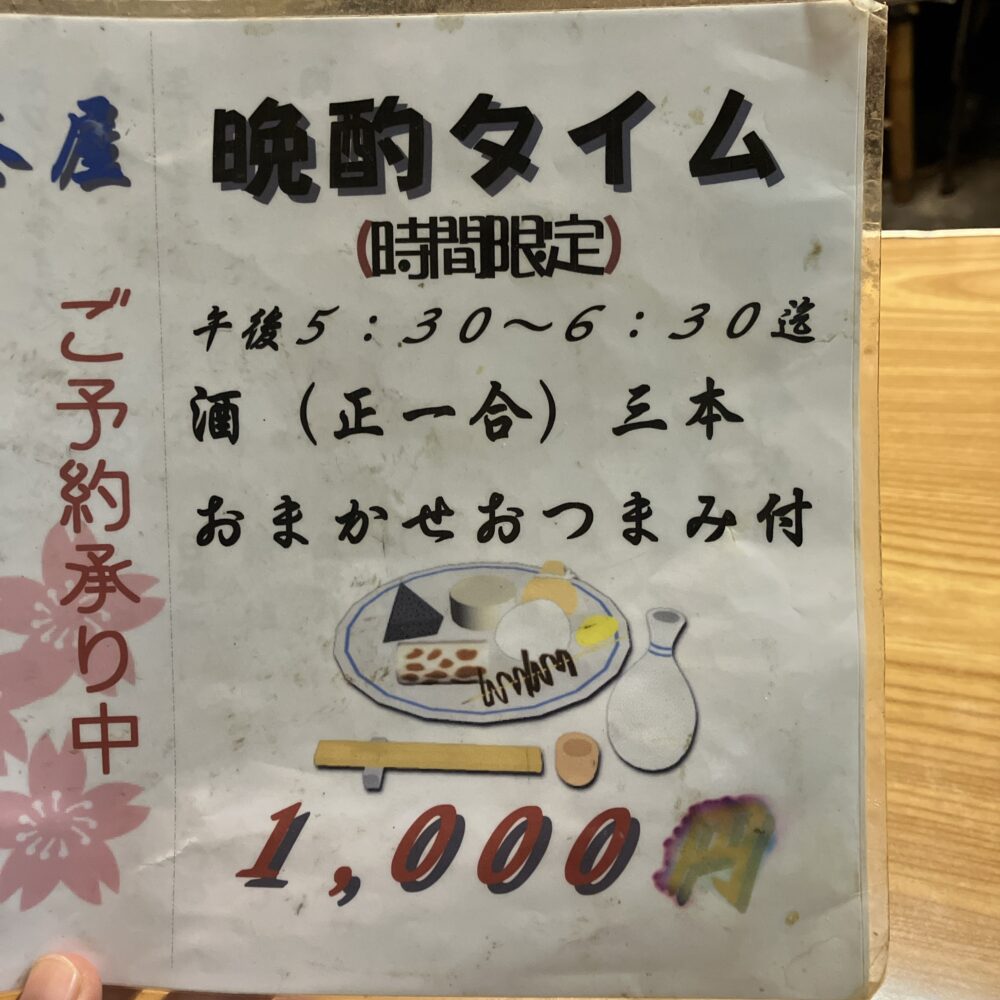 晩酌タイム
(時間限定)
午後5:30～6:30迄
酒（正一合）三本
おまかせおつまみ付
1,000円
屋
ご予約承り中